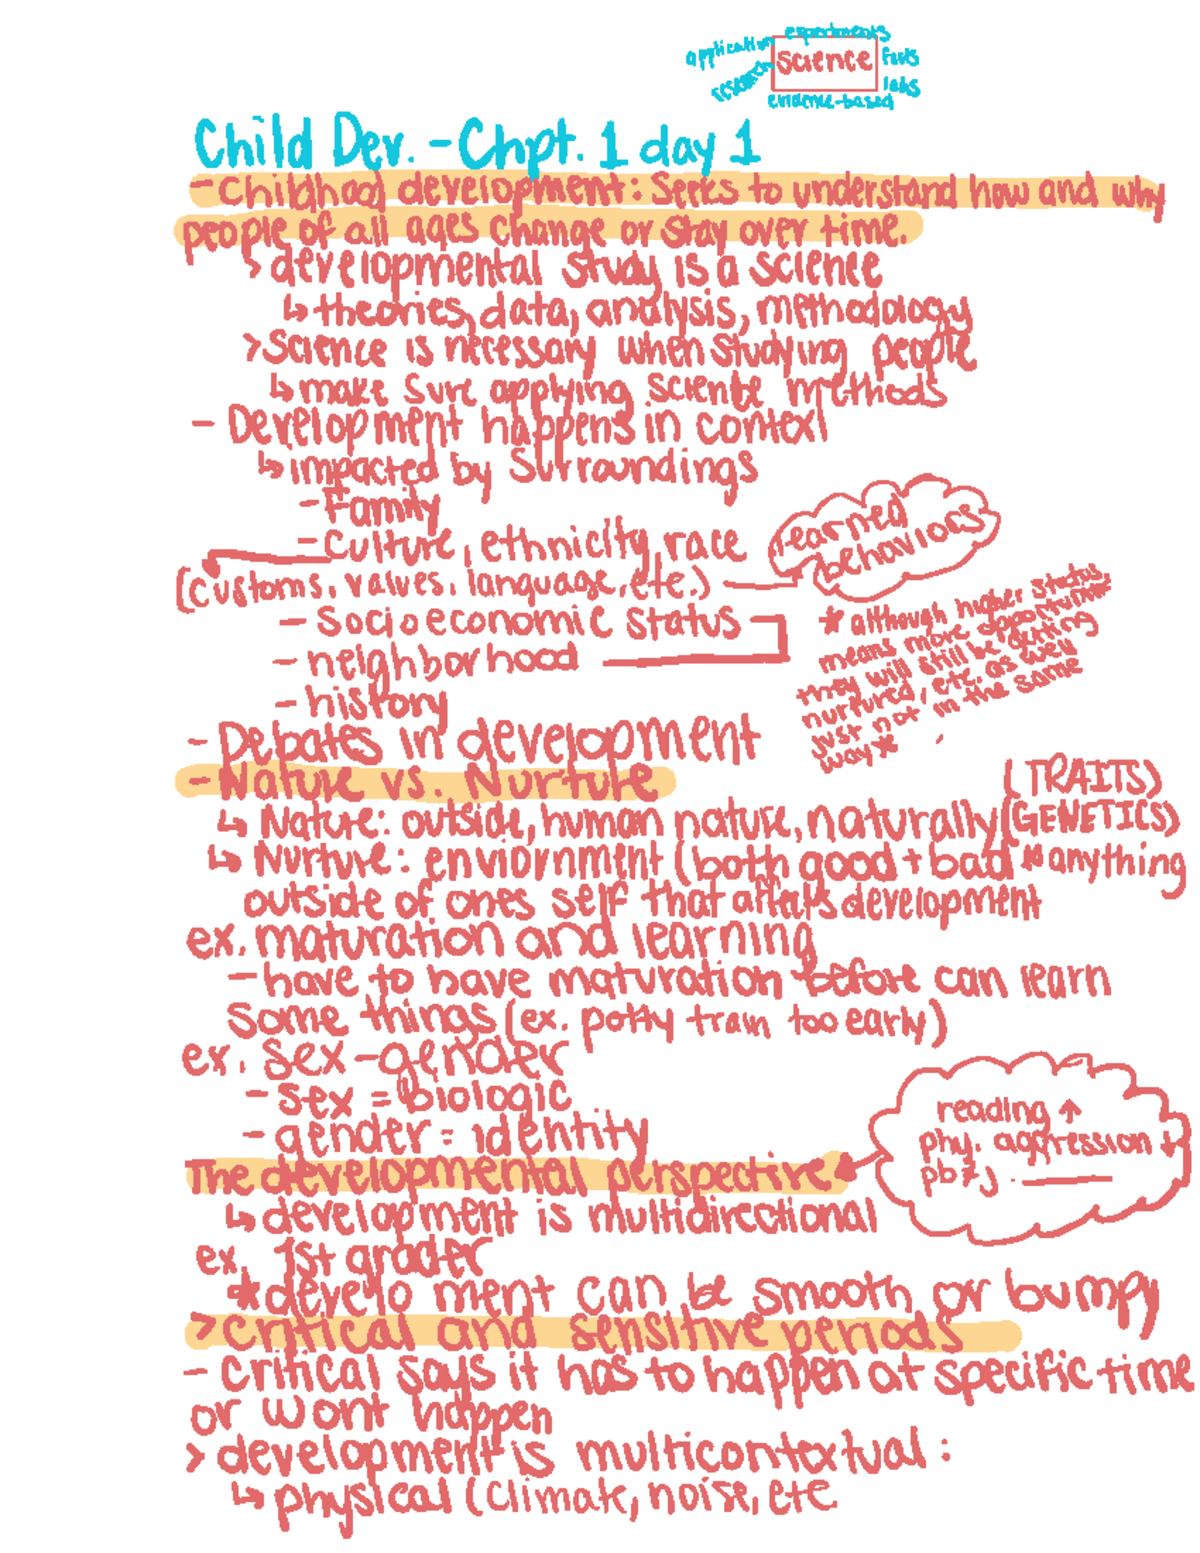 experiments
application
science
facts
research
labs
evidence-based
Child Dev. - Chpt. 1 day 1
- Childhood development: Seeks to understand how and why
people of all ages change or stay over time.
> developmental study is a science
↳ theories, data, analysis, methodology
> Science is necessary when studying people
↳ make sure applying science methods
- Development happens in context
↳ impacted by surroundings
- Family
- culture, ethnicity, race
(customs, values, language, etc.)
learned
behaviors
- Socioeconomic status
- neighborhood
- history
* although higher status
means more opportunities
they will still be getting
nurtured, etc. as well
just not in the same
way *
- Debates in development
- Nature vs. Nurture
↳ Nature: outside, human nature, naturally (TRAITS)
(GENETICS)
↳ Nurture: enviornment (both good + bad * anything
outside of ones self that affects development
ex. maturation and learning
- have to have maturation before can learn
some things (ex. potty train too early)
ex. sex - gender
- sex = biologic
- gender = identity
The developmental perspective
reading ↑
phy. aggression ↓
pb & j - ____
↳ development is multidirectional
ex. 1st grader
* develo ment can be smooth or bumpy
> critical and sensitive periods
- critical says it has to happen at specific time
or wont happen
> development is multicontextual:
↳ physical (climate, noise, etc